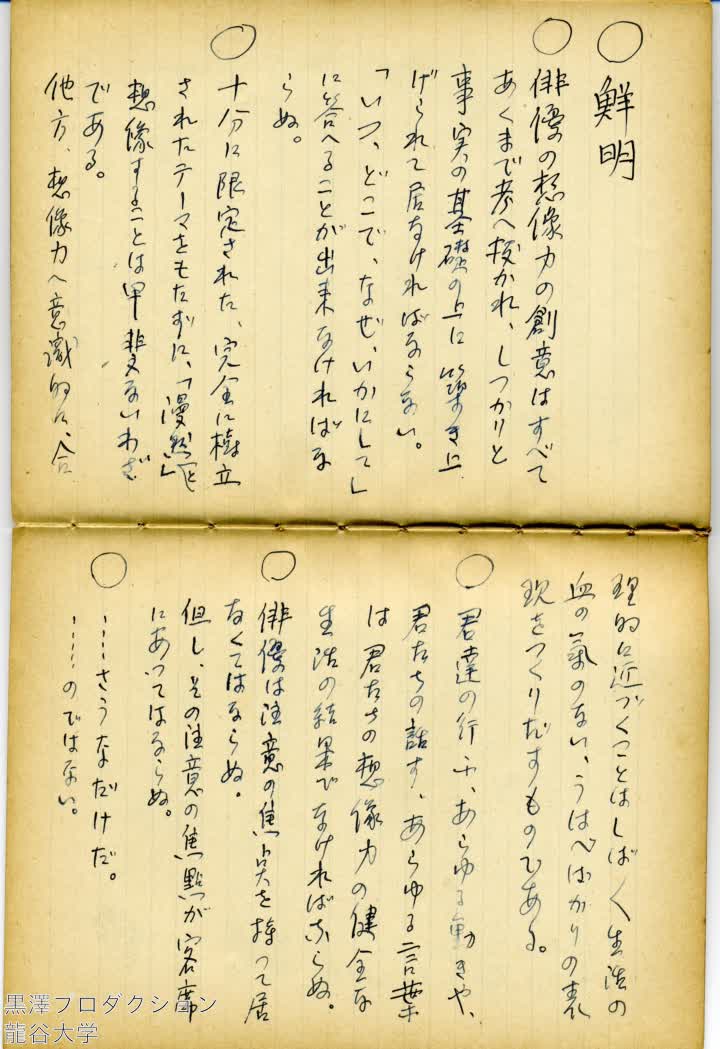 ○ 鮮明
○ 俳優の想像力の創意はすべて
あくまで考へ抜かれ、しつかりと
事実の基礎の上に築き上
げられて居なければならない。
「いつ、どこで、なぜ、いかにして」
に答へることが出来なければな
らぬ。
○ 十分に限定された、完全に樹立
されたテーマをもたずに、「漫然」と
想像することは甲斐ないわざ
である。
他方、想像力へ意識的に、合
理的に近づくことはしばしば生活の
血の氣のない、うはべばかりの表
現をつくりだすものである。
○ 君達の行ふ、あらゆる動きや、
君たちの話す、あらゆる言葉
は君たちの想像力の健全な
生活の結果でなければならぬ。
○ 俳優は注意の焦点を持つて居
なくてはならぬ。
但し、その注意の焦點が客席
にあつてはならぬ。
○ ……さうなだけだ。
……のではない。
黒澤プロダクション
龍谷大学